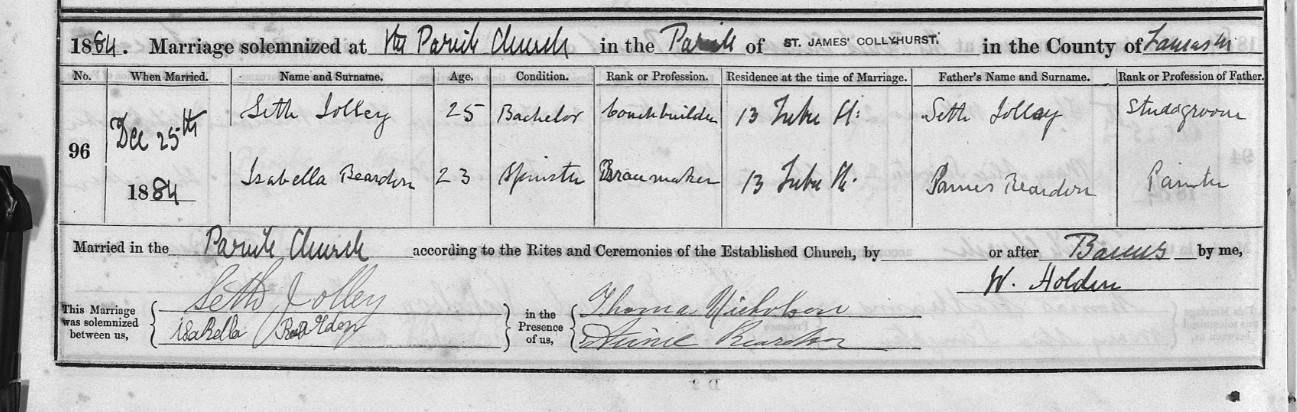 1884. Marriage solemnized at the Parish Church in the Parish of ST. JAMES' COLLYHURST. in the County of Lancaster
No. When Married. Name and Surname. Age. Condition. Rank or Profession. Residence at the time of Marriage. Father's Name and Surname. Rank or Profession of Father.
96 Dec 25th 1884
Seth Jolley 25 Bachelor Coachbuilder 13 St: Seth Jolley Studdgroom
Isabella Beardon 23 Spinster 13 St: James Beardon Painter
Married in the Parish Church according to the Rites and Ceremonies of the Established Church, by or after Banns by me,
W. Holden
This Marriage was solemnized between us,
Seth Jolley
isabella
in the Presence of us,
Thomas Nicholson
Beardon